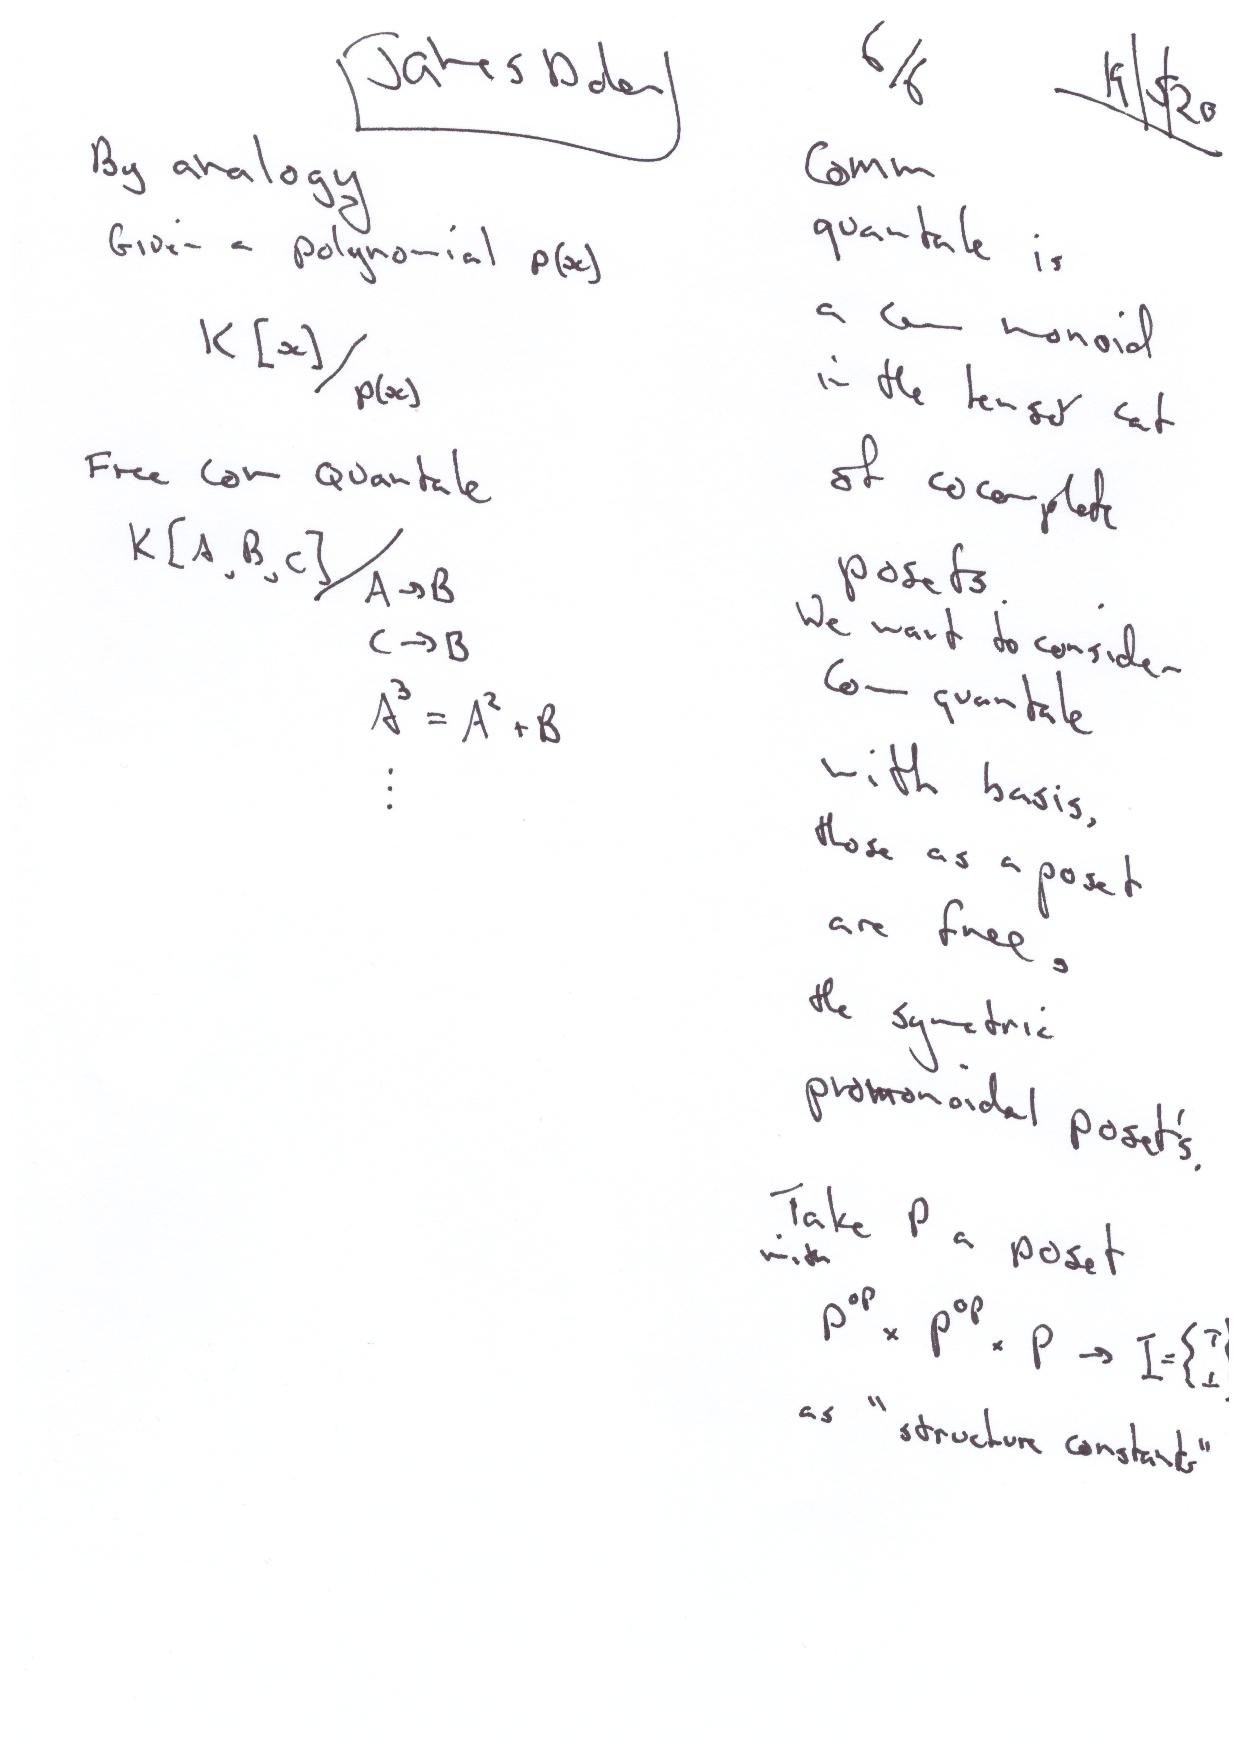 James Dolan
6/6
19/5/20
By analogy
Given a polynomial p(x)
K[x]/p(x)
Free com Quantale
K[A, B, C]/
A → B
C → B
A³ = A² + B
⋮
Comm
quantale is
a com monoid
in the tensor cat
of cocomplete
posets.
We want to consider
Com quantale
with basis,
those as a poset
are free,
the symetric
promonoidal poset's.
Take P a poset
with
P^op × P^op × P → I = {⊤
⊥}
as "structure constants"